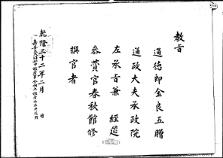 教旨
通德郎金良五贈
通政大夫承政院
左承旨兼 經筵
參贊官春秋館修
撰官者
乾隆三十二年二月 日